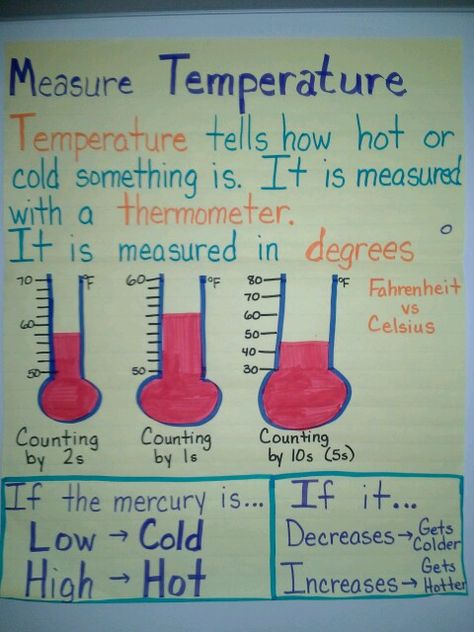 Measure Temperature
Temperature tells how hot or
cold something is. It is measured
with a thermometer.
It is measured in degrees °
Fahrenheit
vs
Celsius
70 °F
60
50
Counting
by 2s
60 °F
50
Counting
by 1s
80 °F
70
60
50
40
30
Counting
by 10s (5s)
If the mercury is...
Low → Cold
High → Hot
If it...
Decreases → Gets Colder
Increases → Gets Hotter